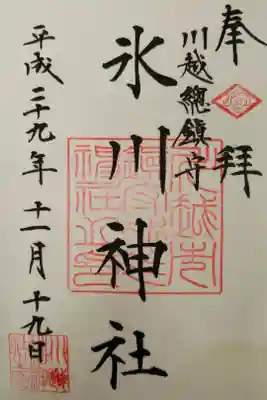 奉拝
川越總鎮守
氷川神社
平成二十九年十一月十九日